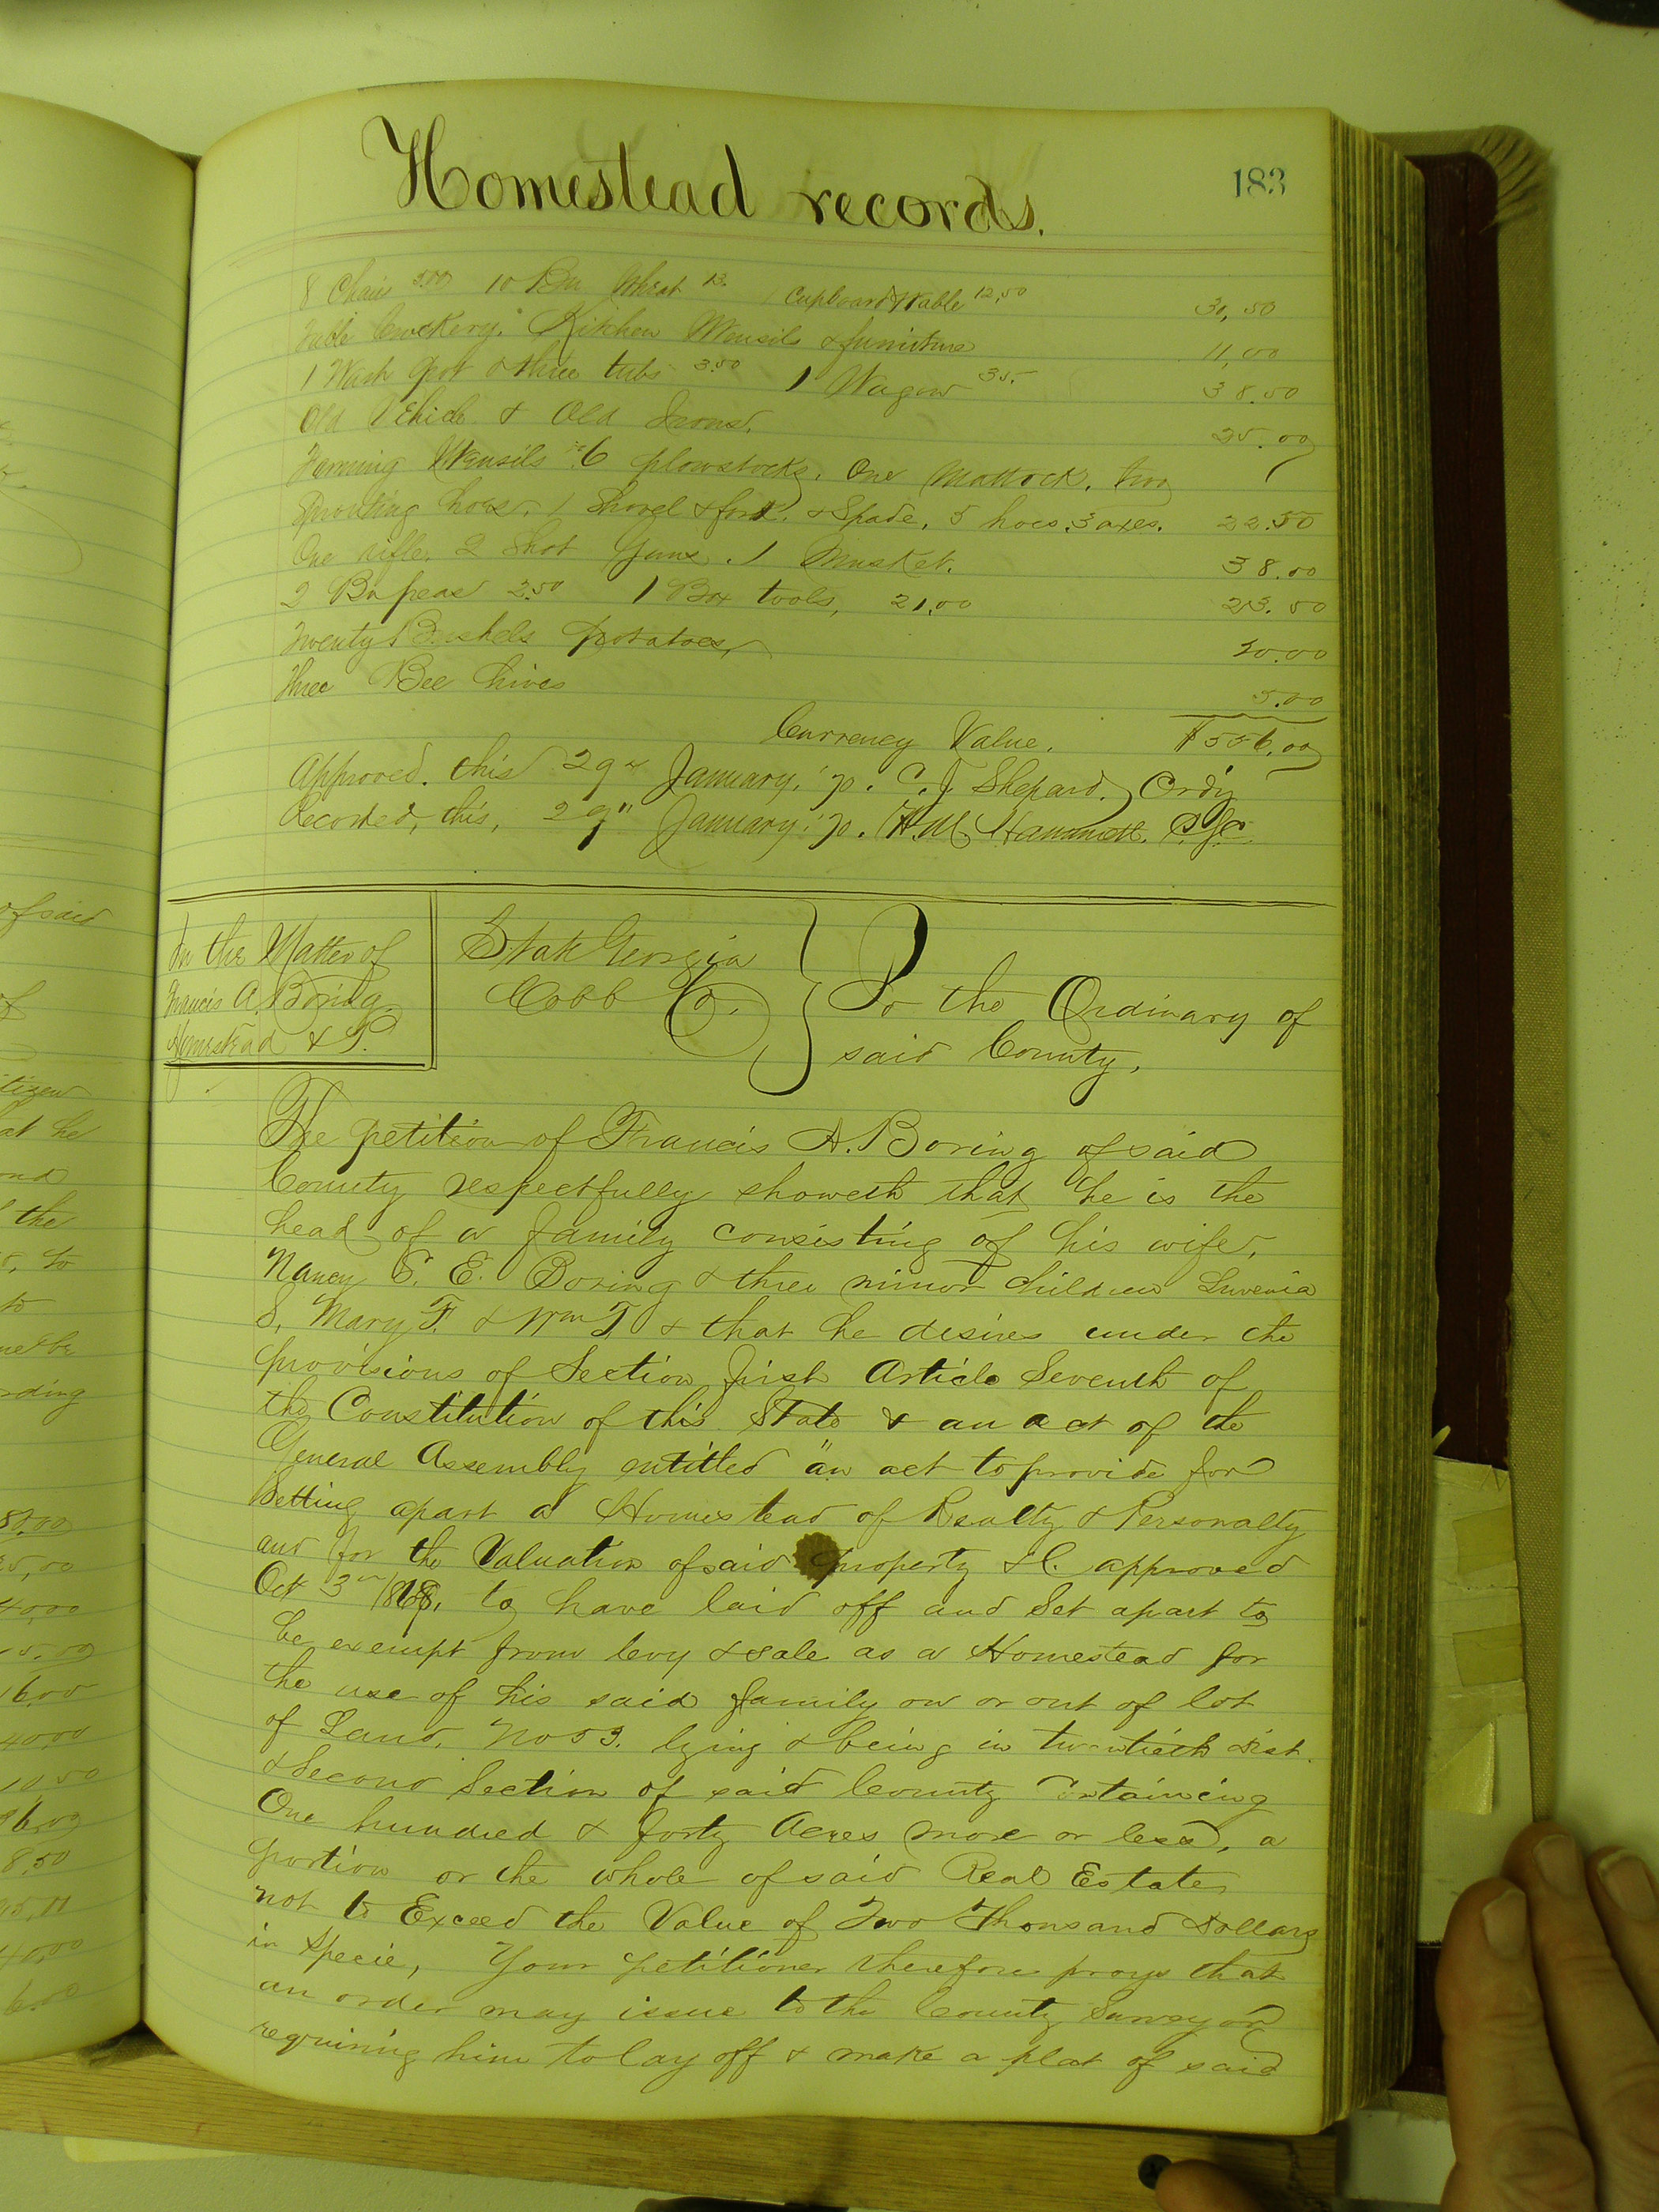 Homestead records.
183
8 Chairs 5.00 10 Bu Wheat 13. 1 Cupboard & Table 12,50 30,50
Table Crockery. Kitchen Utensils & furniture 11,00
1 Wash pot & three tubs 3.50 1 Wagon 35.- 38.50
Old Vehicle & Old Irons. 25.00
Farming Utensils 6 plowstocks. One Mattock. two
Sprouting hoes, 1 Shovel & fork. & Spade. 5 hoes. 3 axes. 22.50
One rifle. 2 Shot Guns. 1 Musket. 38.00
2 Bu peas 2.50 1 Box tools, 21,00 23.50
Twenty Bushels potatoes, 20.00
Three Bee hives 5.00
Currency Value. $556.00
Approved. this 29th January. '70. C. J. Shepard. Ord'y
Recorded, this, 29" January. '70. H. M. Hammett. C.S.C.
In the Matter of
Francis A. Boring
Homestead & P.
State Georgia
Cobb Co.
To the Ordinary of
said County,
The petition of Francis A. Boring of said
County respectfully showeth that he is the
head of a family consisting of his wife,
Nancy S. E. Boring & three minor children Luvenia
S, Mary F. & Wm T. & that he desires under the
provisions of Section first Article Seventh of
the Constitution of this State & an act of the
General Assembly entitled "an act to provide for
Setting apart a Homestead of Realty & Personalty
and for the Valuation of said property &C. approved
Oct 3rd 1868, to have laid off and Set apart to
be exempt from levy & sale as a Homestead for
the use of his said family on or out of lot
of Land, No 53. lying & being in twentieth Dist.
& Second Section of said County Containing
One hundred & forty Acres more or less, a
portion or the whole of said Real Estate,
not to Exceed the Value of Two Thousand Dollars
in Specie, Your petitioner therefore prays that
an order may issue to the County Surveyor
requiring him to lay off & make a plat of said